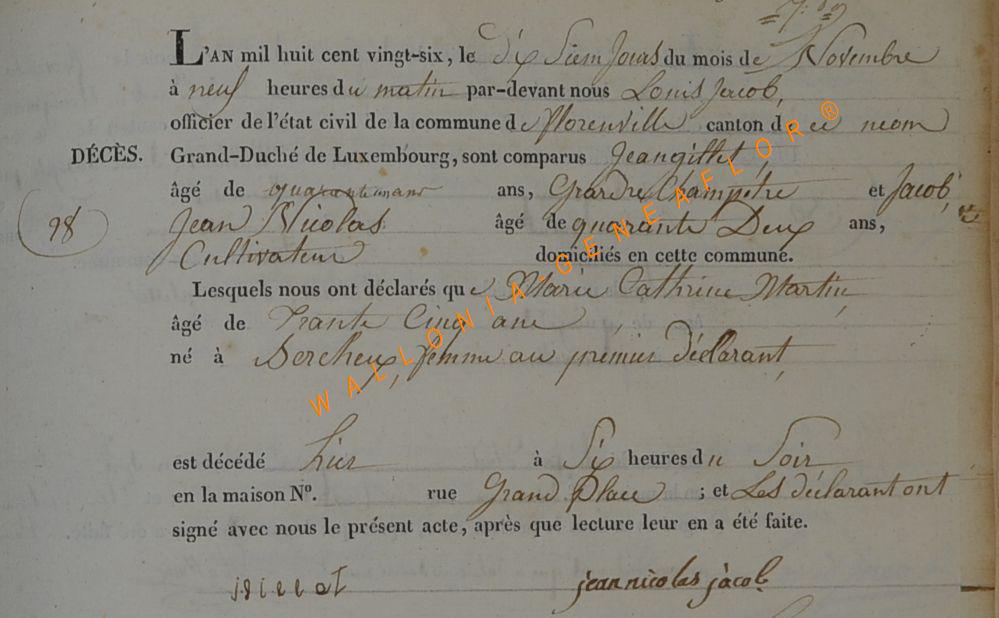 L'AN mil huit cent vingt-six, le dix Siem Jours du mois de Novembre
à neuf heures du matin par-devant nous Louis Jacob,
officier de l'état civil de la commune de florenville canton de ce neom
DÉCÈS. Grand-Duché de Luxembourg, sont comparus Jean gillet,
âgé de ans, Garde Champétre et Jacob,
98 Jean Nicolas âgé de quarante Deux ans,
Cultivateur domiciliés en cette commune.
Lesquels nous ont déclarés que Marie Cathrine Martin
âgé de Trante Cinq ans
né à Dercheux, femme au premier déclarant,
est décédé hier à Six heures du Soir
en la maison N°. rue Grand Place ; et Les déclarant ont
signé avec nous le présent acte, après que lecture leur en a été faite.
j gillet jean nicolas jacob
WALLONIA-GENEAFLOR®